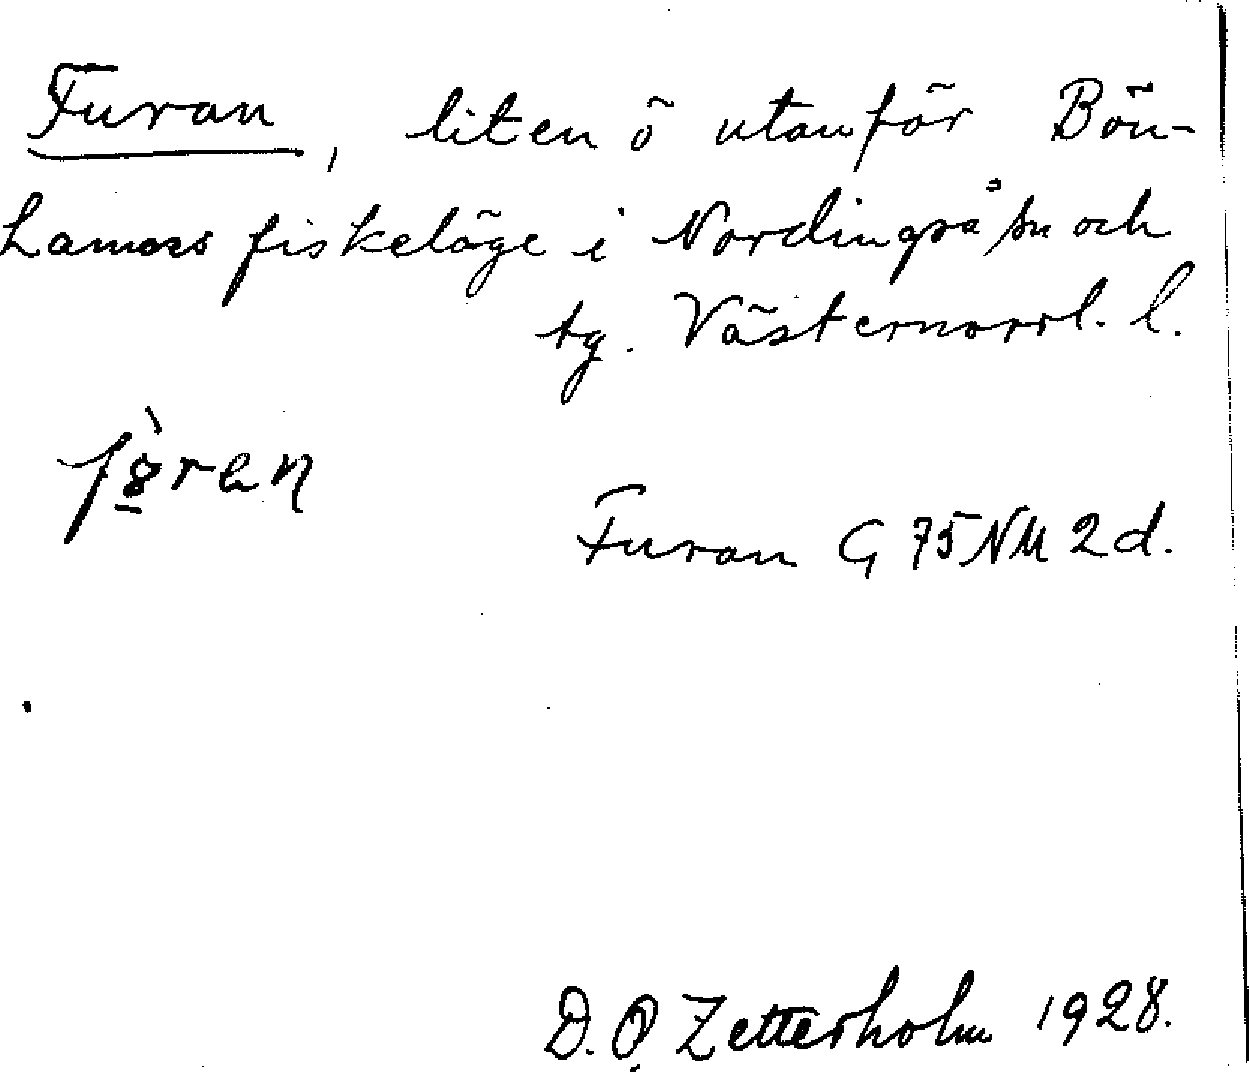 Furan, liten ö utanför Bön-
hamns fiskeläge i Nordingrå sn och
tg. Västernorrl. l.
Furan G 75 NM 2 d.
D. O. Zetterholm 1928.